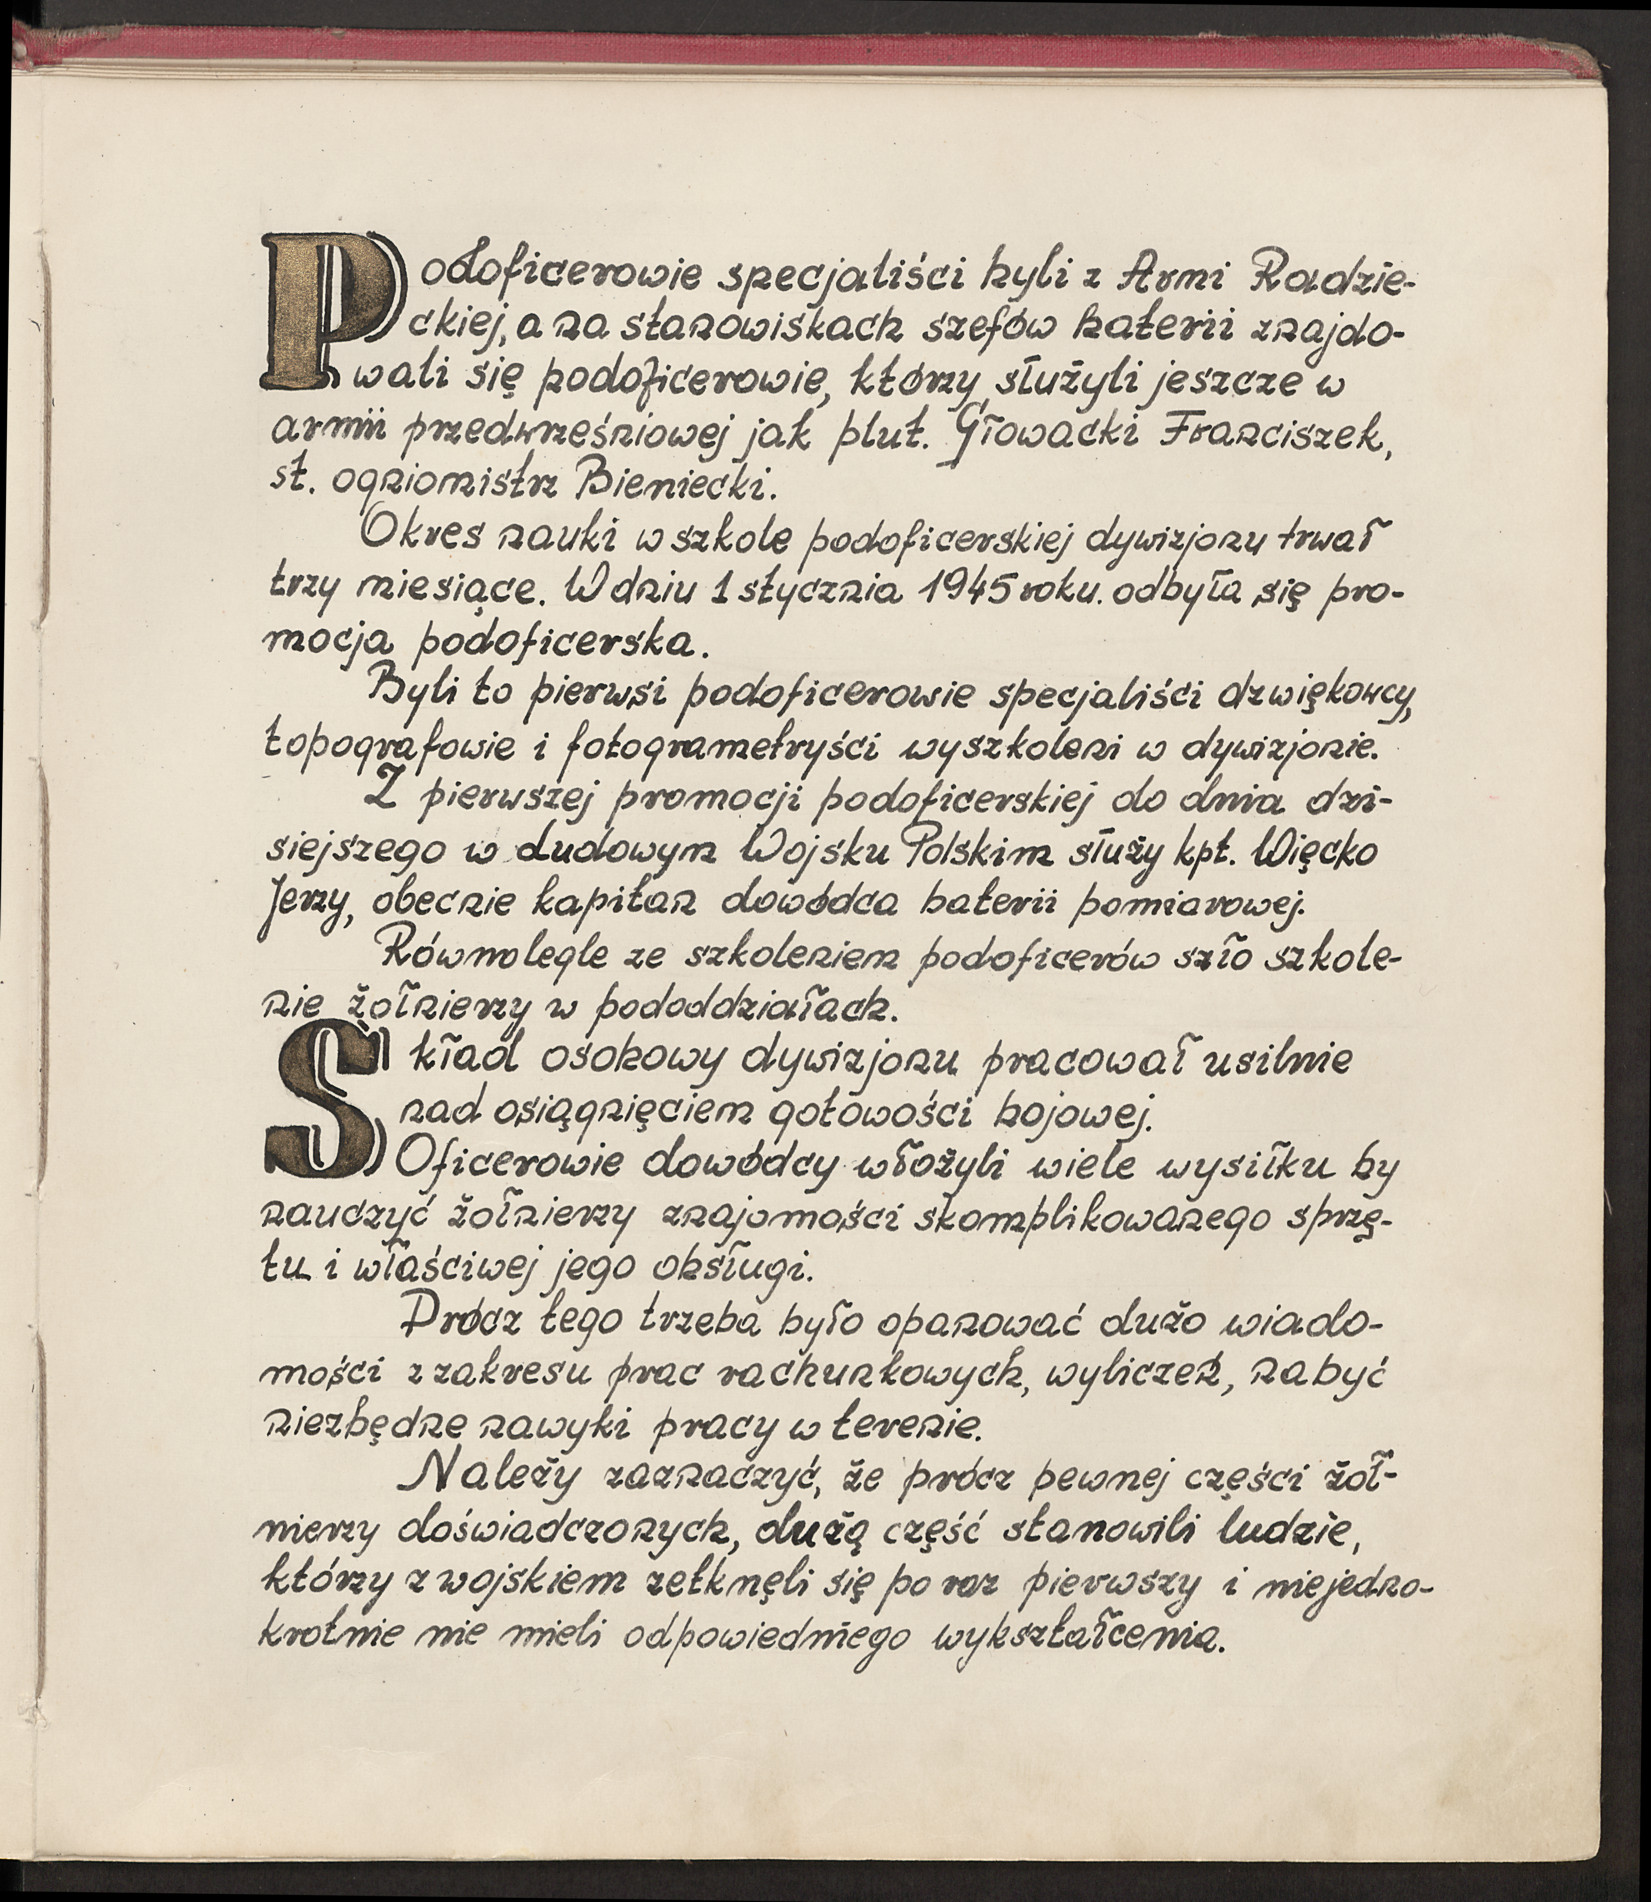 Podoficerowie specjaliści byli z Armi Radzie-
ckiej, a na stanowiskach szefów baterii znajdo-
wali się podoficerowie, którzy służyli jeszcze w
armii przedwrześniowej jak plut. Głowacki Franciszek,
st. ogniomistrz Bieniecki.
Okres nauki w szkole podoficerskiej dywizjonu trwał
trzy miesiące. W dniu 1 stycznia 1945 roku. odbyła się pro-
mocja podoficerska.
Byli to pierwsi podoficerowie specjaliści dzwiękowcy,
topografowie i fotogrametryści wyszkoleni w dywizjonie.
Z pierwszej promocji podoficerskiej do dnia dzi-
siejszego w Ludowym Wojsku Polskim służy kpt. Więcko
Jerzy, obecnie kapitan dowódca baterii pomiarowej.
Równolegle ze szkoleniem podoficerów szło szkole-
nie żołnierzy w pododdziałach.
Skład osobowy dywizjonu pracował usilnie
nad osiągnięciem gotowości bojowej.
Oficerowie dowódcy włożyli wiele wysiłku by
nauczyć żołnierzy znajomości skomplikowanego sprzę-
tu i właściwej jego obsługi.
Prócz tego trzeba było opanować dużo wiado-
mości z zakresu prac rachunkowych, wyliczeń, nabyć
niezbędne nawyki pracy w terenie.
Należy zaznaczyć, że prócz pewnej części żoł-
nierzy doświadczonych, dużą część stanowili ludzie,
którzy z wojskiem zetknęli się po raz pierwszy i niejedno-
krotnie nie mieli odpowiedniego wykształcenia.